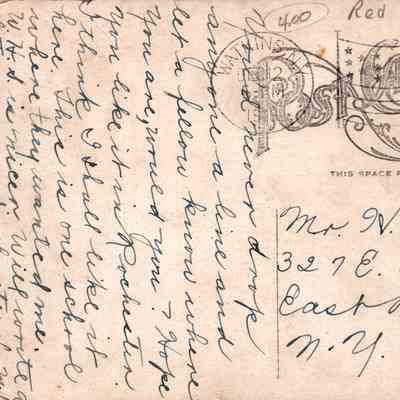 4.00
Red
WATKINS
2
POST CA
THIS SPACE
You'd never drop
anyone a line and
let a fellow know where
you are, would you? Hope
you like it in Rochester.
I think I shall like it
here. This is one school
where they wanted me.
is nice. Will write
Mr. H.
327 E.
East
N.Y.